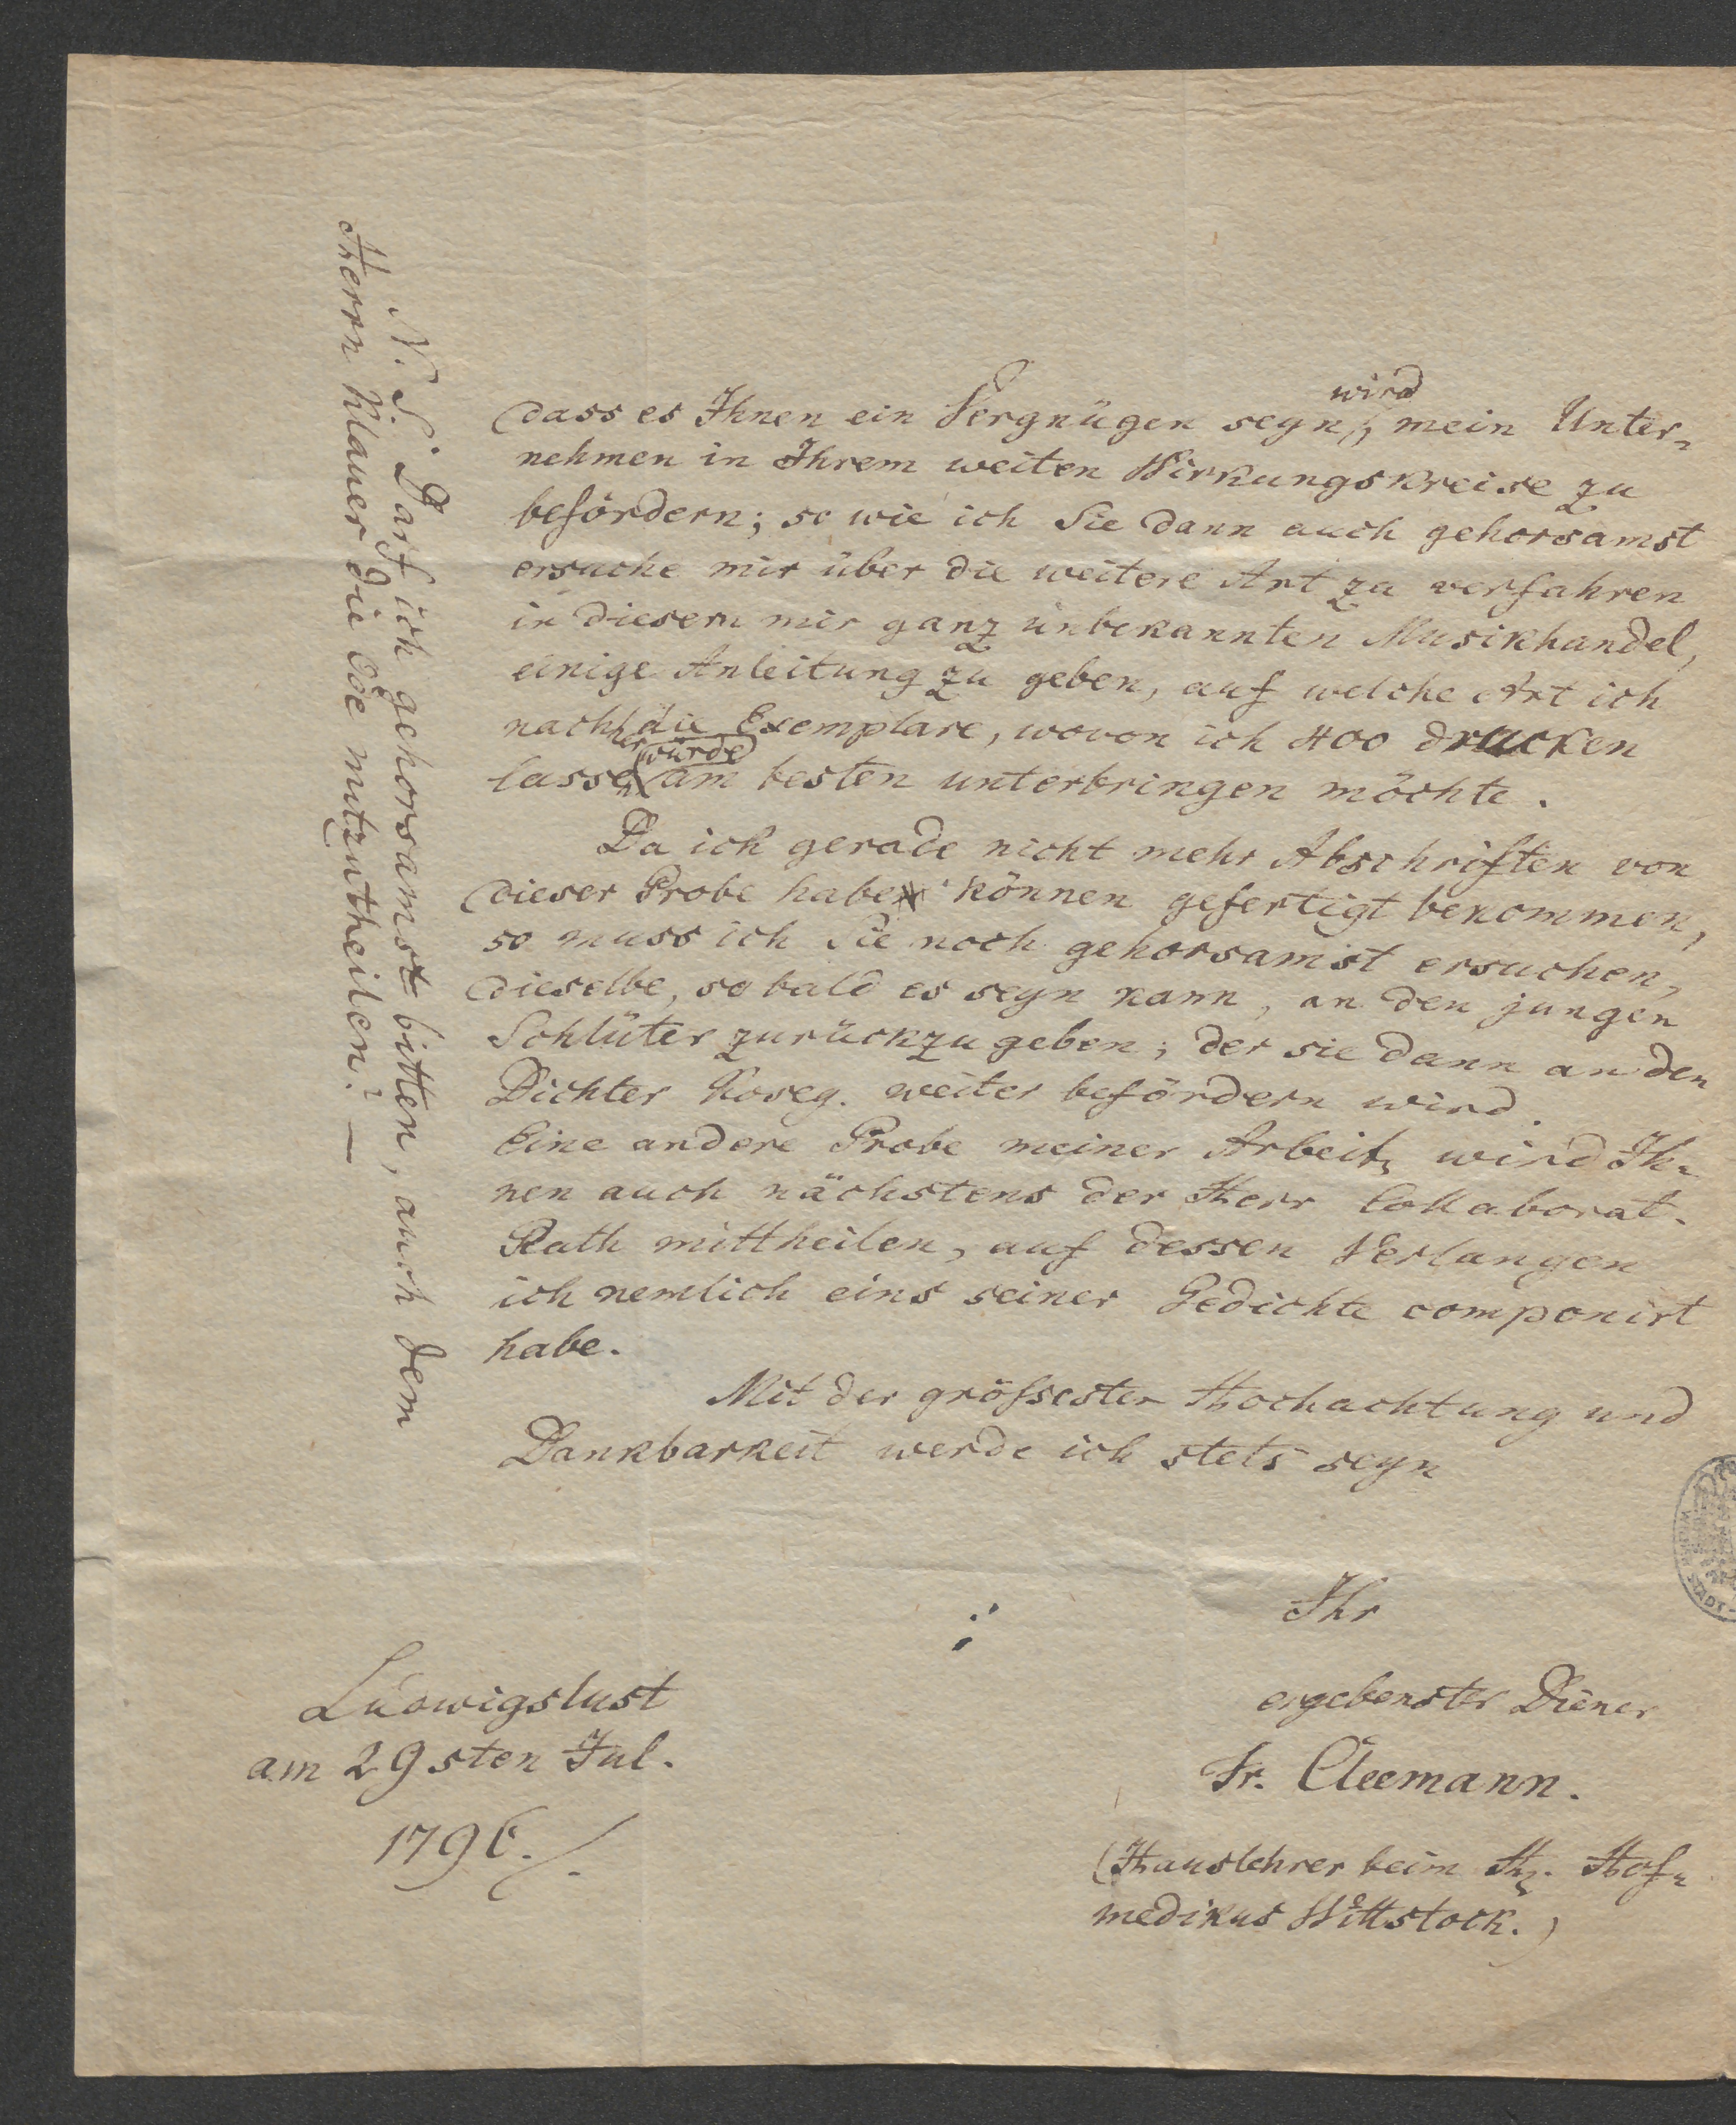 dass es Ihnen ein Vergnügen seyn wird, mein Unter-
nehmen in Ihrem weiten Wirkungskreise zu
befördern; so wie ich Sie dann auch gehorsamst
ersuche mir über die weitere Art zu verfahren
in diesem mir ganz unbekannten Musikhandel,
einige Anleitung zu geben, auf welche Art ich
nachher die Exemplare, wovon ich 400 drucken
lassen würde am besten unterbringen möchte.
Da ich gerade nicht mehr Abschriften von
dieser Probe habe können gefertigt bekommen,
so muss ich Sie noch gehorsamst ersuchen,
dieselbe, so bald es seyn kann, an den jungen
Schlüter zurückzugeben; der sie dann an den
Dichter Koseg. weiter befördern wird.
Eine andere Probe meiner Arbeit, wird Ih-
nen auch nächstens der Herr Collaborat.
Rath mittheilen, auf dessen Verlangen
ich nemlich eins seiner Gedichte componirt
habe.
Mit der grössesten Hochachtung und
Dankbarkeit werde ich stets seyn
Ihr
ergebenster Diener
Fr. Cleemann.
(Hauslehrer beim H. Hof-
medikus Wittstock.)
Ludwigslust
am 29sten Jul.
1796./.
N. S. Darf ich gehorsamst bitten, auch dem
Herrn Klauer die Ode mitzutheilen? —